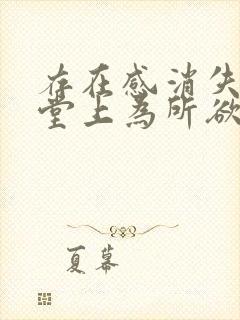 存在感消失
堂上為所欲
夏幕